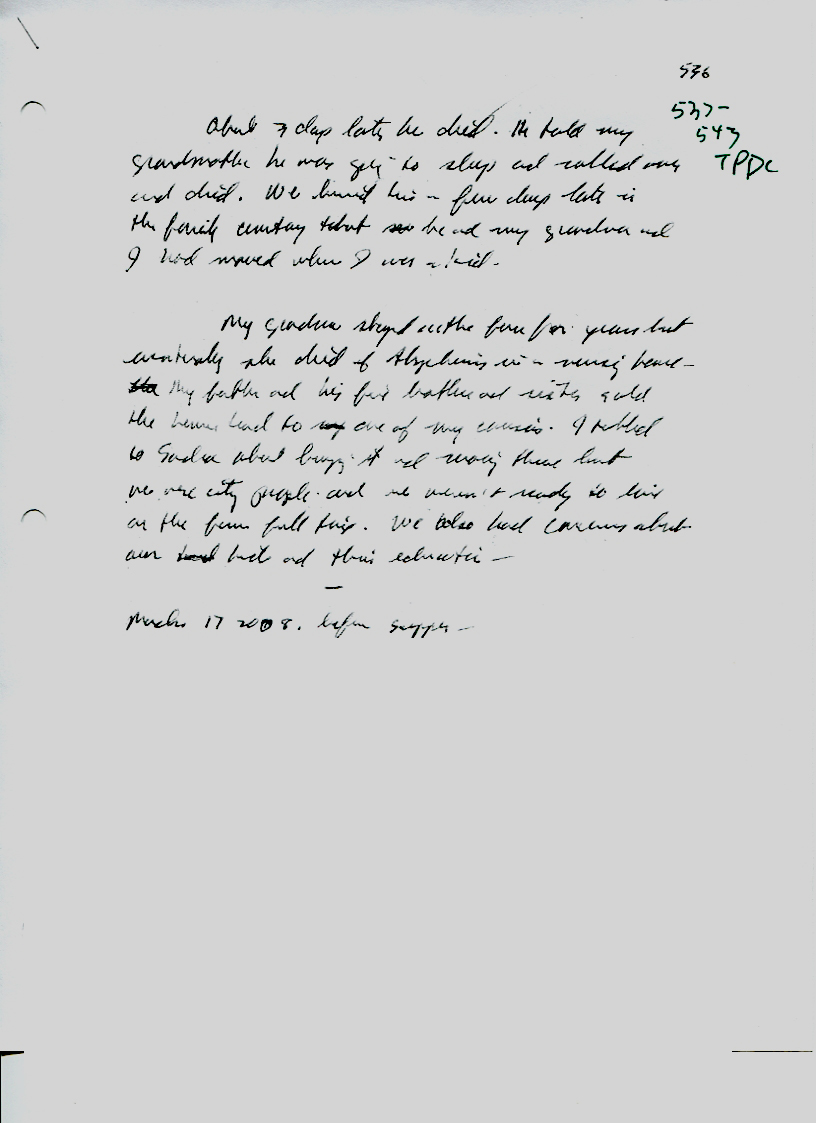 536
537-
543
TPDC
About 3 days later he died. He told my
grandmother he was going to sleep and rolled over
and died. We buried him a few days later in
the family cemetary that he and my grandma and
I had moved when I was a kid.
My grandma stayed on the farm for years but
eventually she died of Alzheimers in a nursing home -
My father and his four brothers and sisters sold
the home land to one of my cousins. I talked
to Sandra about buying it and moving there but
we are city people and we weren't ready to live
on the farm full time. We also had concerns about
our kids and their education —
—
March 17 2008. before supper —